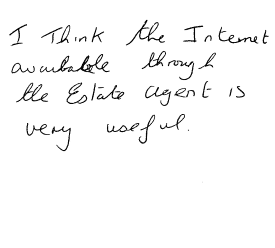 I Think the Internet
available through
the Estate agent is
very useful.